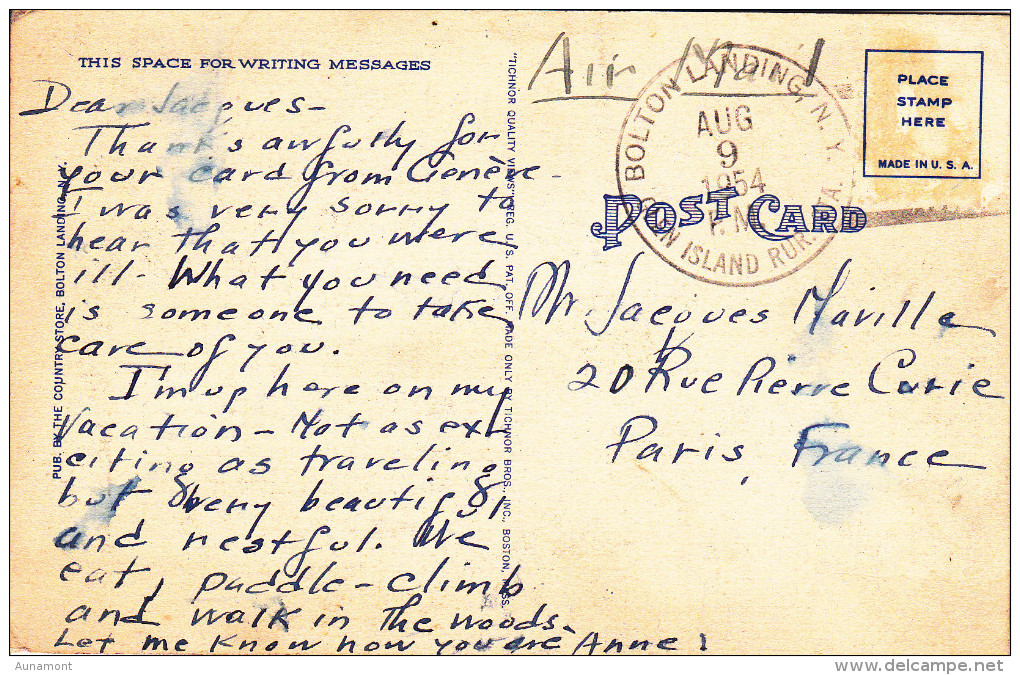 THIS SPACE FOR WRITING MESSAGES
Dear Jacques-
Thanks awfully for
your card from Genève-
I was very sorry to
hear that you were
ill. What you need
is someone to take
care of you.
I'm up here on my
vacation - Not as ex-
citing as traveling
but very beautiful
and restful. We
eat, paddle - climb
and walk in the woods.
Let me know how you are Anne!
PUB. BY THE COUNTRY STORE, BOLTON LANDING, N.Y.
"TICHNOR QUALITY VIEWS" REG. U. S. PAT. OFF. MADE ONLY BY TICHNOR BROS., INC., BOSTON, MASS.
Air Mail
BOLTON LANDING, N.Y.
AUG
9
1954
P.M.
ISLAND RUR. STA.
PLACE
STAMP
HERE
MADE IN U. S. A.
POST CARD
Mr. Jacques Maville
20 Rue Pierre Curie
Paris, France
Aunamont
www.delcampe.net